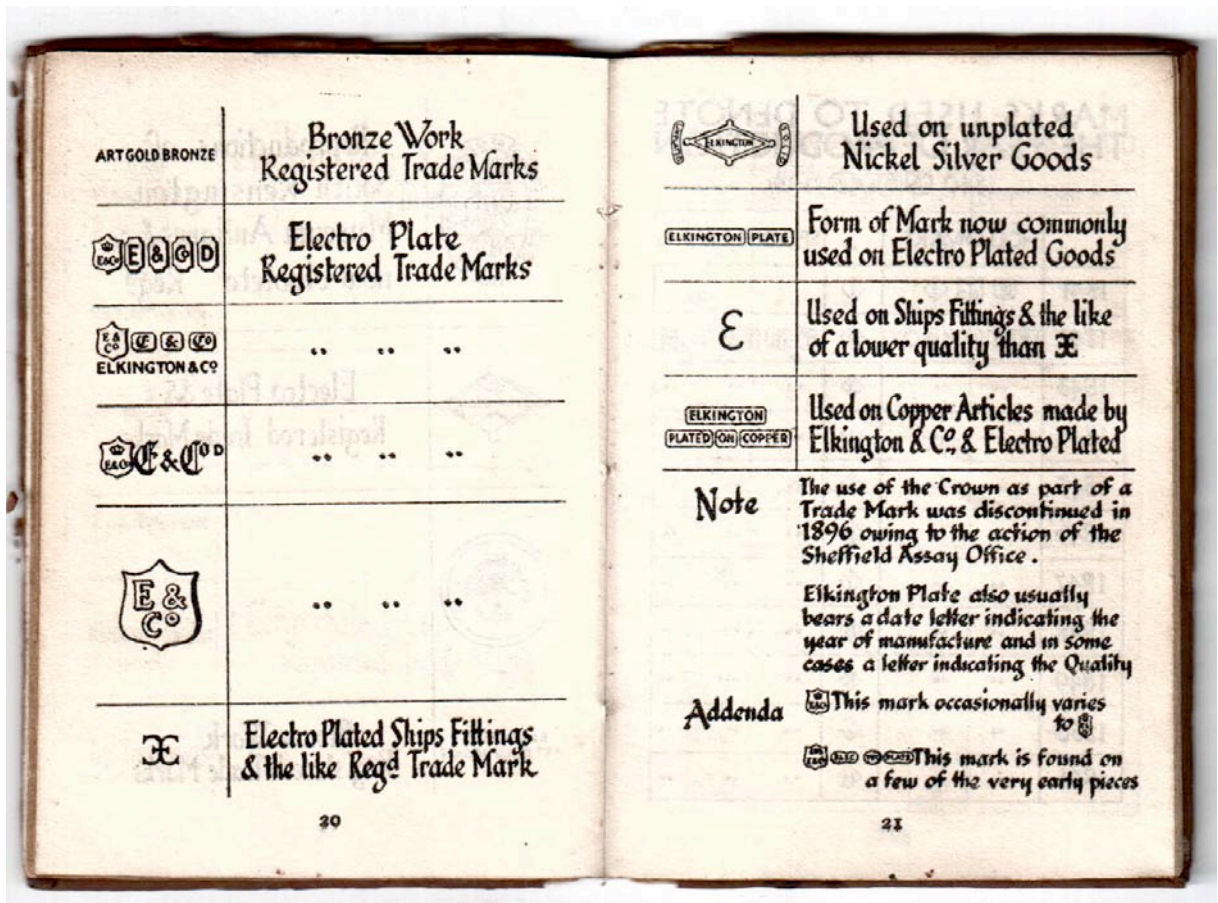 ART GOLD BRONZE
Bronze Work
Registered Trade Marks
E&Co E & Co D
Electro Plate
Registered Trade Marks
E & Co E & Co
ELKINGTON & Co
" " "
E&Co E & Co D
" " "
E &
Co
" " "
Electro Plated Ships Fittings
& the like Regd Trade Mark
20
ELKINGTON
Used on unplated
Nickel Silver Goods
ELKINGTON PLATE
Form of Mark now commonly
used on Electro Plated Goods
Ɛ
Used on Ships Fittings & the like
of a lower quality than ƎE
ELKINGTON
PLATED ON COPPER
Used on Copper Articles made by
Elkington & Co., & Electro Plated
Note
The use of the Crown as part of a
Trade Mark was discontinued in
1896 owing to the action of the
Sheffield Assay Office.
Elkington Plate also usually
bears a date letter indicating the
year of manufacture and in some
cases a letter indicating the Quality
Addenda
This mark occasionally varies
to
This mark is found on
a few of the very early pieces
21